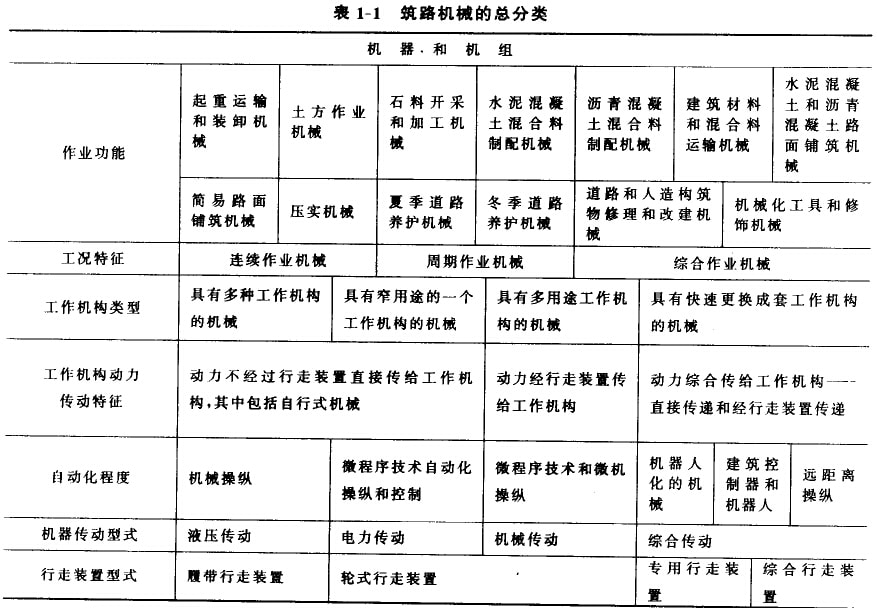 表 1-1 筑路机械的总分类
机 器 和 机 组
作业功能
起重运输
和装卸机
械
土方作业
机械
石料开采
和加工机
械
水泥混凝
土混合料
制配机械
沥青混凝
土混合料
制配机械
建筑材料
和混合料
运输机械
水泥混凝
土和沥青
混凝土路
面铺筑机
械
简易路面
铺筑机械
压实机械
夏季道路
养护机械
冬季道路
养护机械
道路和人造构筑
物修理和改建机
械
机械化工具和修
饰机械
工况特征
连续作业机械
周期作业机械
综合作业机械
工作机构类型
具有多种工作机构
的机械
具有窄用途的一个
工作机构的机械
具有多用途工作机
构的机械
具有快速更换成套工作机构
的机械
工作机构动力
传动特征
动力不经过行走装置直接传给工作机
构,其中包括自行式机械
动力经行走装置传
给工作机构
动力综合传给工作机构——
直接传递和经行走装置传递
自动化程度
机械操纵
微程序技术自动化
操纵和控制
微程序技术和微机
操纵
机器人
化的机
械
建筑控
制器和
机器人
远距离
操纵
机器传动型式
液压传动
电力传动
机械传动
综合传动
行走装置型式
履带行走装置
轮式行走装置
专用行走装
置
综合行走装
置